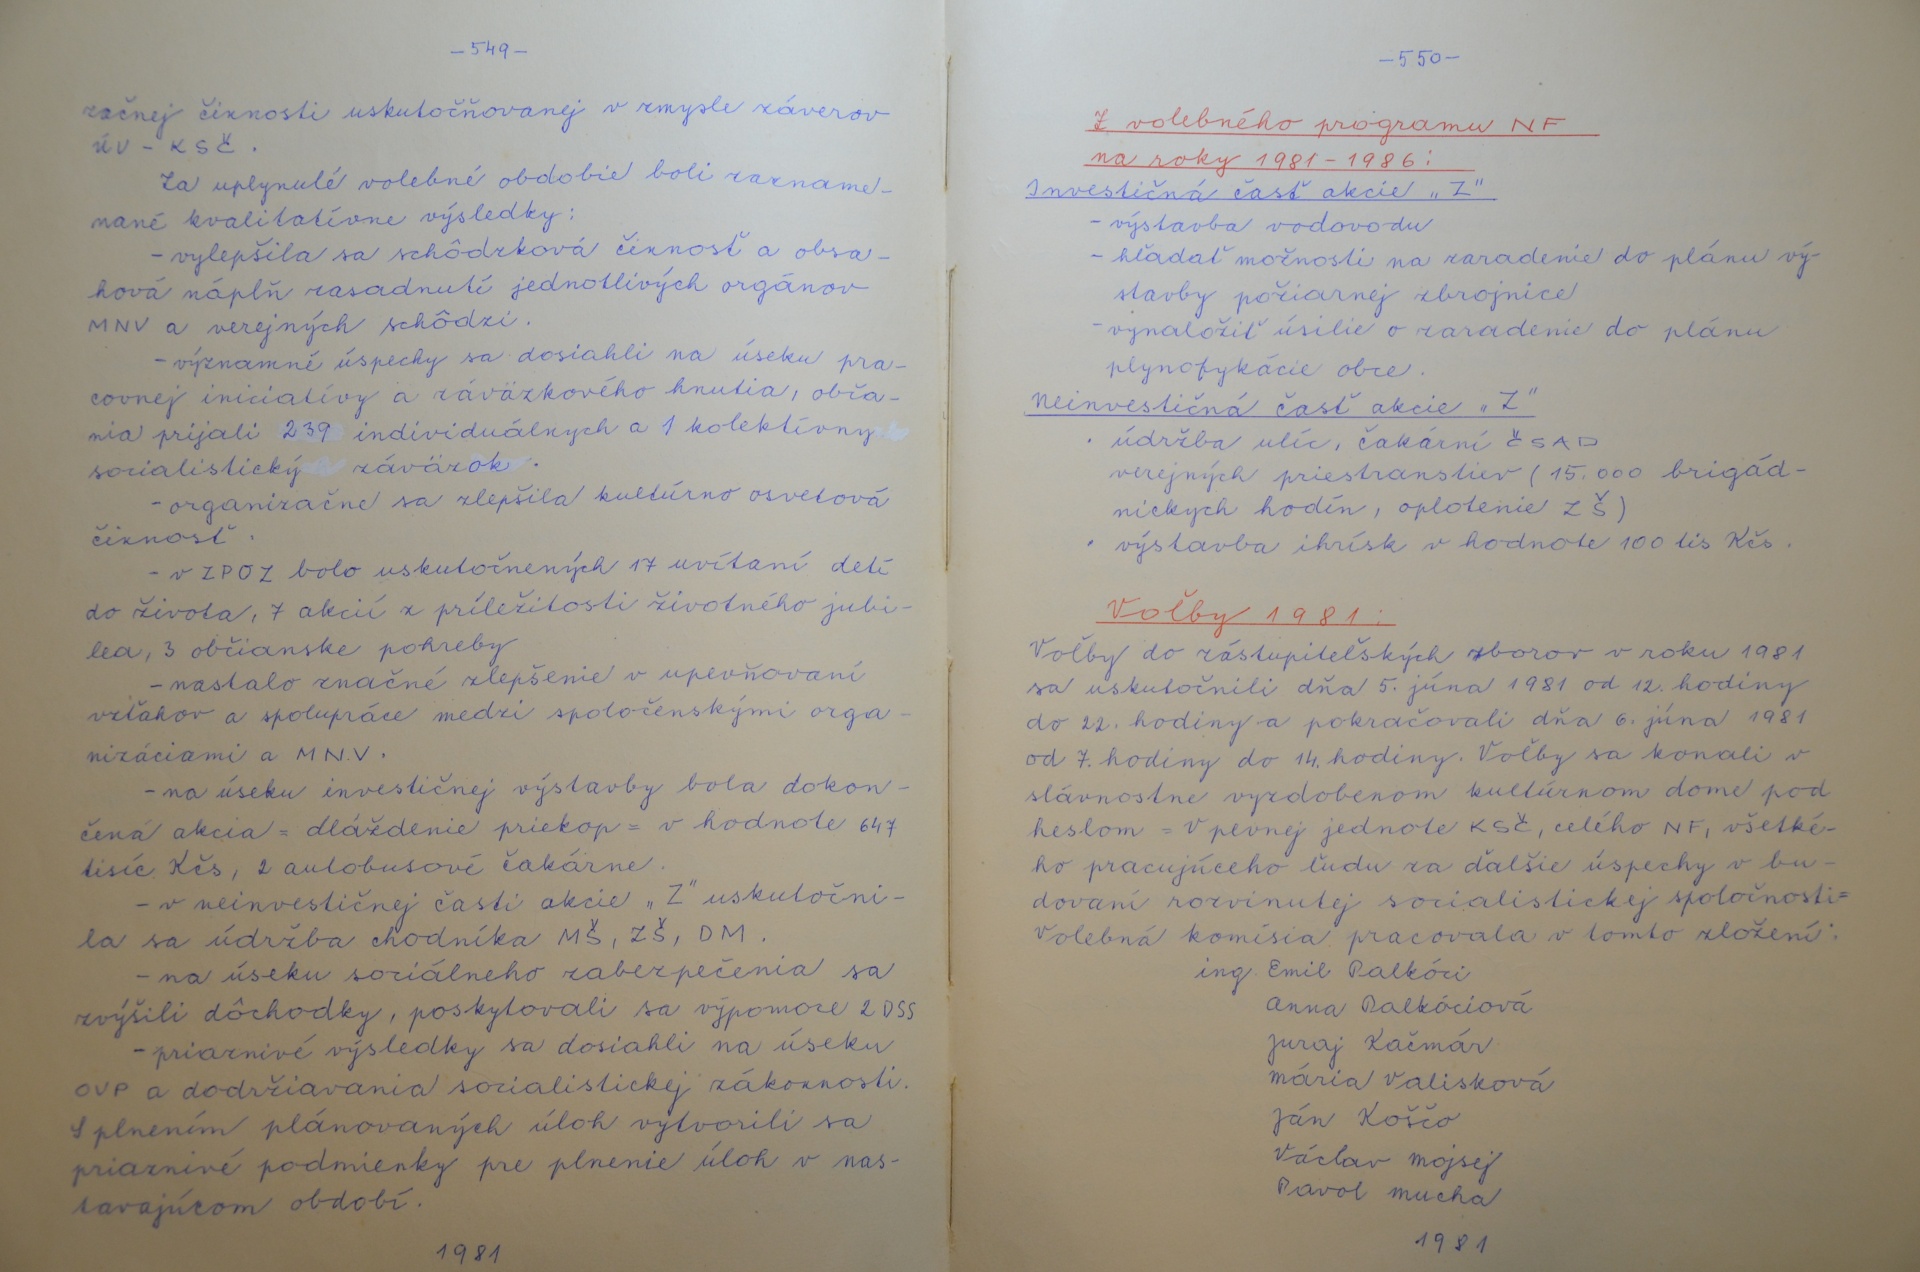 -549-
začnej činnosti uskutočňovanej v zmysle záverov
ÚV - KSČ.
Za uplynulé volebné obdobie boli zazname-
nané kvalitatívne výsledky:
- vylepšila sa schôdzková činnosť a obsa-
hová náplň zasadnutí jednotlivých orgánov
MNV a verejných schôdzi.
- významné úspechy sa dosiahli na úseku pra-
covnej iniciatívy a záväzkového hnutia, obča-
nia prijali 239 individuálnych a 1 kolektívny
socialistický záväzok.
- organizačne sa zlepšila kultúrno osvetová
činnosť.
- v ZPOZ bolo uskutočnených 17 uvítaní detí
do života, 7 akcií z príležitosti životného jubi-
lea, 3 občianske pohreby
- nastalo značné zlepšenie v upevňovaní
vzťahov a spolupráce medzi spoločenskými orga-
nizáciami a MNV.
- na úseku investičnej výstavby bola dokon-
čená akcia = dláždenie priekop = v hodnote 647
tisíc Kčs, 2 autobusové čakárne.
- v neinvestičnej časti akcie „Z" uskutočni-
la sa údržba chodníka MŠ, ZŠ, DM.
- na úseku sociálneho zabezpečenia sa
zvýšili dôchodky, poskytovali sa výpomoce 2 DSS
- priaznivé výsledky sa dosiahli na úseku
OVP a dodržiavania socialistickej zákoznosti.
S plnením plánovaných úloh vytvorili sa
priaznivé podmienky pre plnenie úloh v nas-
tavajúcom období.
1981
-550-
Z volebného programu NF
na roky 1981-1986:
Investičná časť akcie „Z"
- výstavba vodovodu
- hľadať možnosti na zaradenie do plánu vý-
stavby požiarnej zbrojnice
- vynaložiť úsilie o zaradenie do plánu
plynofykácie obce.
Neinvestičná časť akcie „Z"
· údržba ulíc, čakární ČSAD
verejných priestranstiev (15.000 brigád-
nických hodín, oplotenie ZŠ)
· výstavba ihrísk v hodnote 100 tis Kčs.
Voľby 1981:
Voľby do zástupiteľských zborov v roku 1981
sa uskutočnili dňa 5. júna 1981 od 12. hodiny
do 22. hodiny a pokračovali dňa 6. júna 1981
od 7. hodiny do 14. hodiny. Voľby sa konali v
slávnostne vyzdobenom kultúrnom dome pod
heslom = V pevnej jednote KSČ, celého NF, všetké-
ho pracujúceho ľudu za ďalšie úspechy v bu-
dovaní rozvinutej socialistickej spoločnosti=
Volebná komisia pracovala v tomto zložení:
ing. Emil Palkóci
Anna Palkóciová
Juraj Kačmár
Mária Valisková
Ján Koščo
Václav Mojsej
Pavol Mucha
1981